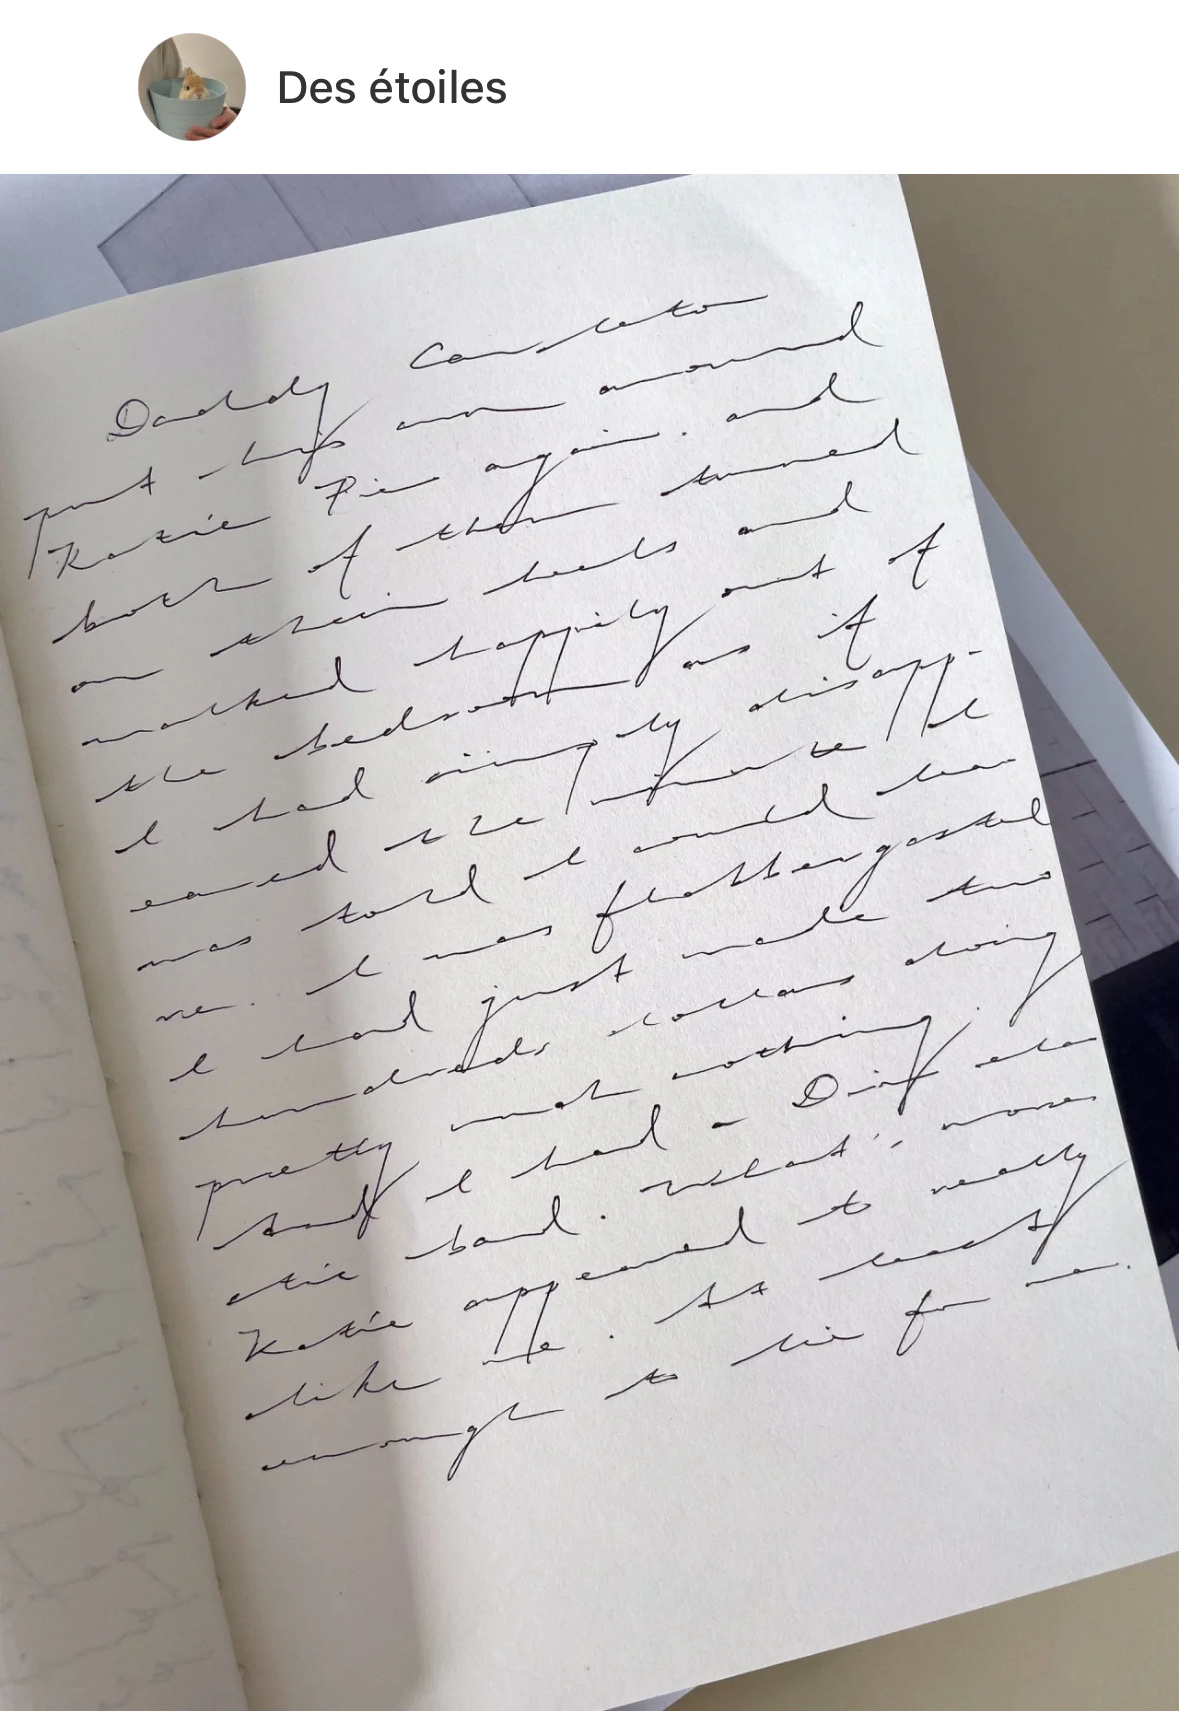 Des étoiles
Daddy Carleton
put his arm around
Katie Pie again. and
both of them turned
on their heels and
walked happily out of
the bedroom as if
I had simply disapp-
eared the minute I
was told I could leave
me. I was flabbergasted
I had just made two
hundreds dollars doing
pretty much nothing.
And I had a Dirt
bad. What's more
Katie appeared to really
like me. At least
enough to lie for me.